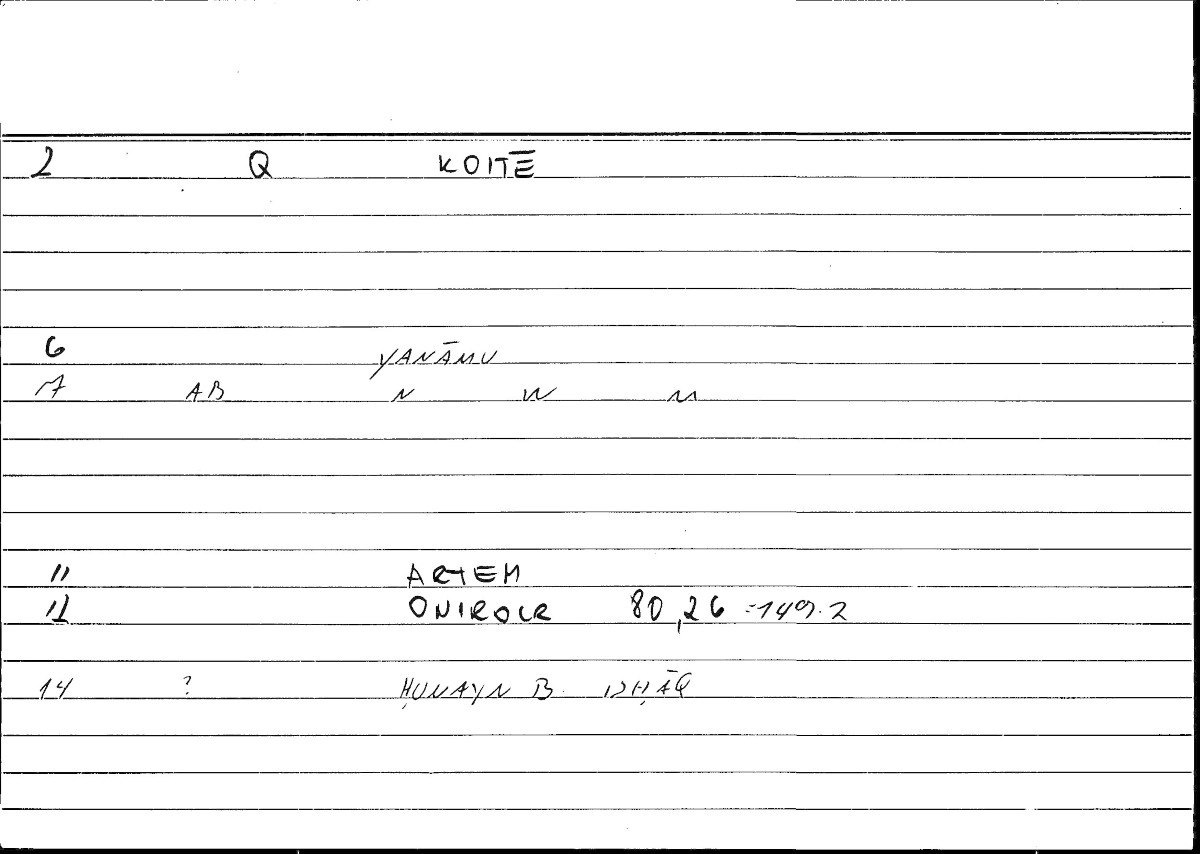 2 Q KOITĒ
6 YANĀMU
7 AB N W M
11 ARTEM
12 ONIROCR 80,26 = 149.2
14 ? ḤUNAYN B. ISḤĀQ